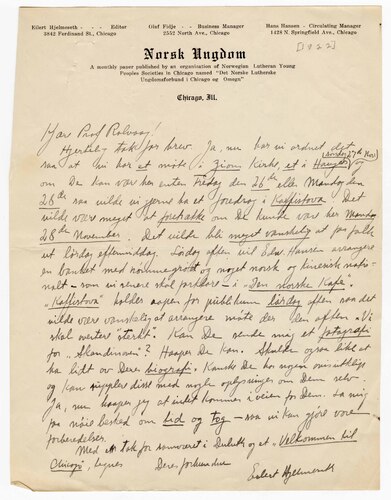 Eilert Hjelmseth - - Editor
3842 Ferdinand St., Chicago
Oluf Fidje - - Business Manager
2552 North Ave., Chicago
Hans Hansen - Circulating Manager
1428 N. Springfield Ave., Chicago
[1922]
Norsk Ungdom
A monthly paper published by an organization of Norwegian Lutheran Young
Peoples Societies in Chicago named "Det Norske Lutherske
Ungdomsforbund i Chicago og Omegn"
Chicago, Ill.
Kjære Prof Rolvaag!
Hjertelig tak for brev. Ja, nu har vi ordnet det
saa at vi har et møte i Zion Kirke, et i Hauges (søndag 27de Nov) og
om De kan være her enten Fredag den 26de eller Mandag den
28de saa vilde vi gjerne ha et foredrag i Kaffistova. Det
vilde være meget at foretrække om De kunde være her Mandag
28de November. Det vilde bli meget vanskelig at faa folk
et lørdag eftermiddag. Lørdag aften vil Edw. Hansen arrangere
en banket med rømmegrøt og noget norsk og kinesisk
- som vi senere skal parlere - i "Den norske Kafe".
"Kaffistova" holder aapen for publikum lørdag aften saa det
vilde være vanskelig at arrangere møte der den aften. "Vi
skal avertere" sterkt. Kan De sende mig et fotografi
for "Skandinaven"? Haaper De kan. Skulde ogsaa like at
ha litt av Deres biografi. Kanske De har nogen
og kan supplere disse med nogle oplysninger om Dem selv.
Ja, nu haaper jeg at intet kommer i veien for Dem. La mig
faa nøie besked om tid og tog - saa vi kan gjøre vore
forberedelser.
Med tak for samværet i Duluth og et "Velkommen til
Chicago", tegnes Deres forbundne
Eilert Hjelmseth